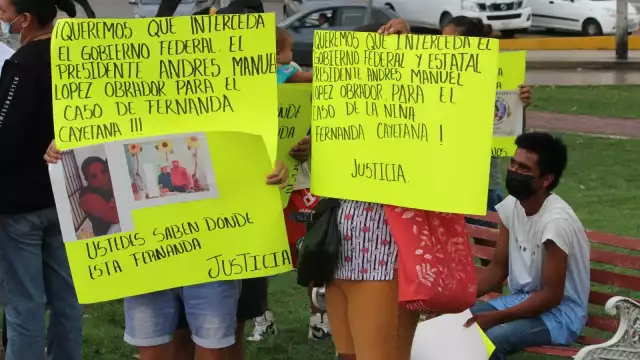 ¡QUEREMOS QUE INTERCEDA
EL GOBIERNO FEDERAL. EL
PRESIDENTE ANDRES MANUEL
LOPEZ OBRADOR PARA EL
CASO DE FERNANDA
CAYETANA !!!
USTEDES SABEN DONDE
ESTA FERNANDA
JUSTICIA
QUEREMOS QUE INTERCEDA EL
GOBIERNO FEDERAL Y ESTATAL
PRESIDENTE ANDRES MANUEL
LOPEZ OBRADOR. PARA EL
CASO DE LA NIÑA
FERNANDA CAYETANA !
JUSTICIA.